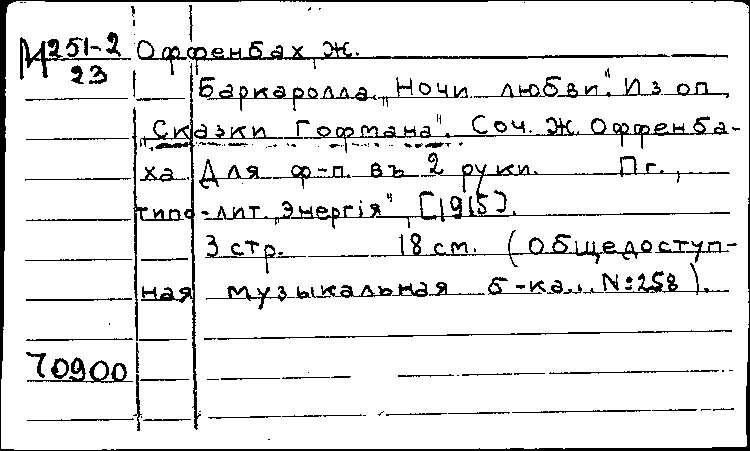 М 251-2 Оффенбах, Ж.
23
Баркаролла „Ночи любви“. Из оп.
„Сказки Гофмана“. Соч. Ж. Оффенба-
ха Для ф-п. въ 2 руки. Пг.,
типо-лит. „Энергія“, [1915].
3 стр. 18 см. (Общедоступ-
ная музыкальная б-ка... №258).
70900